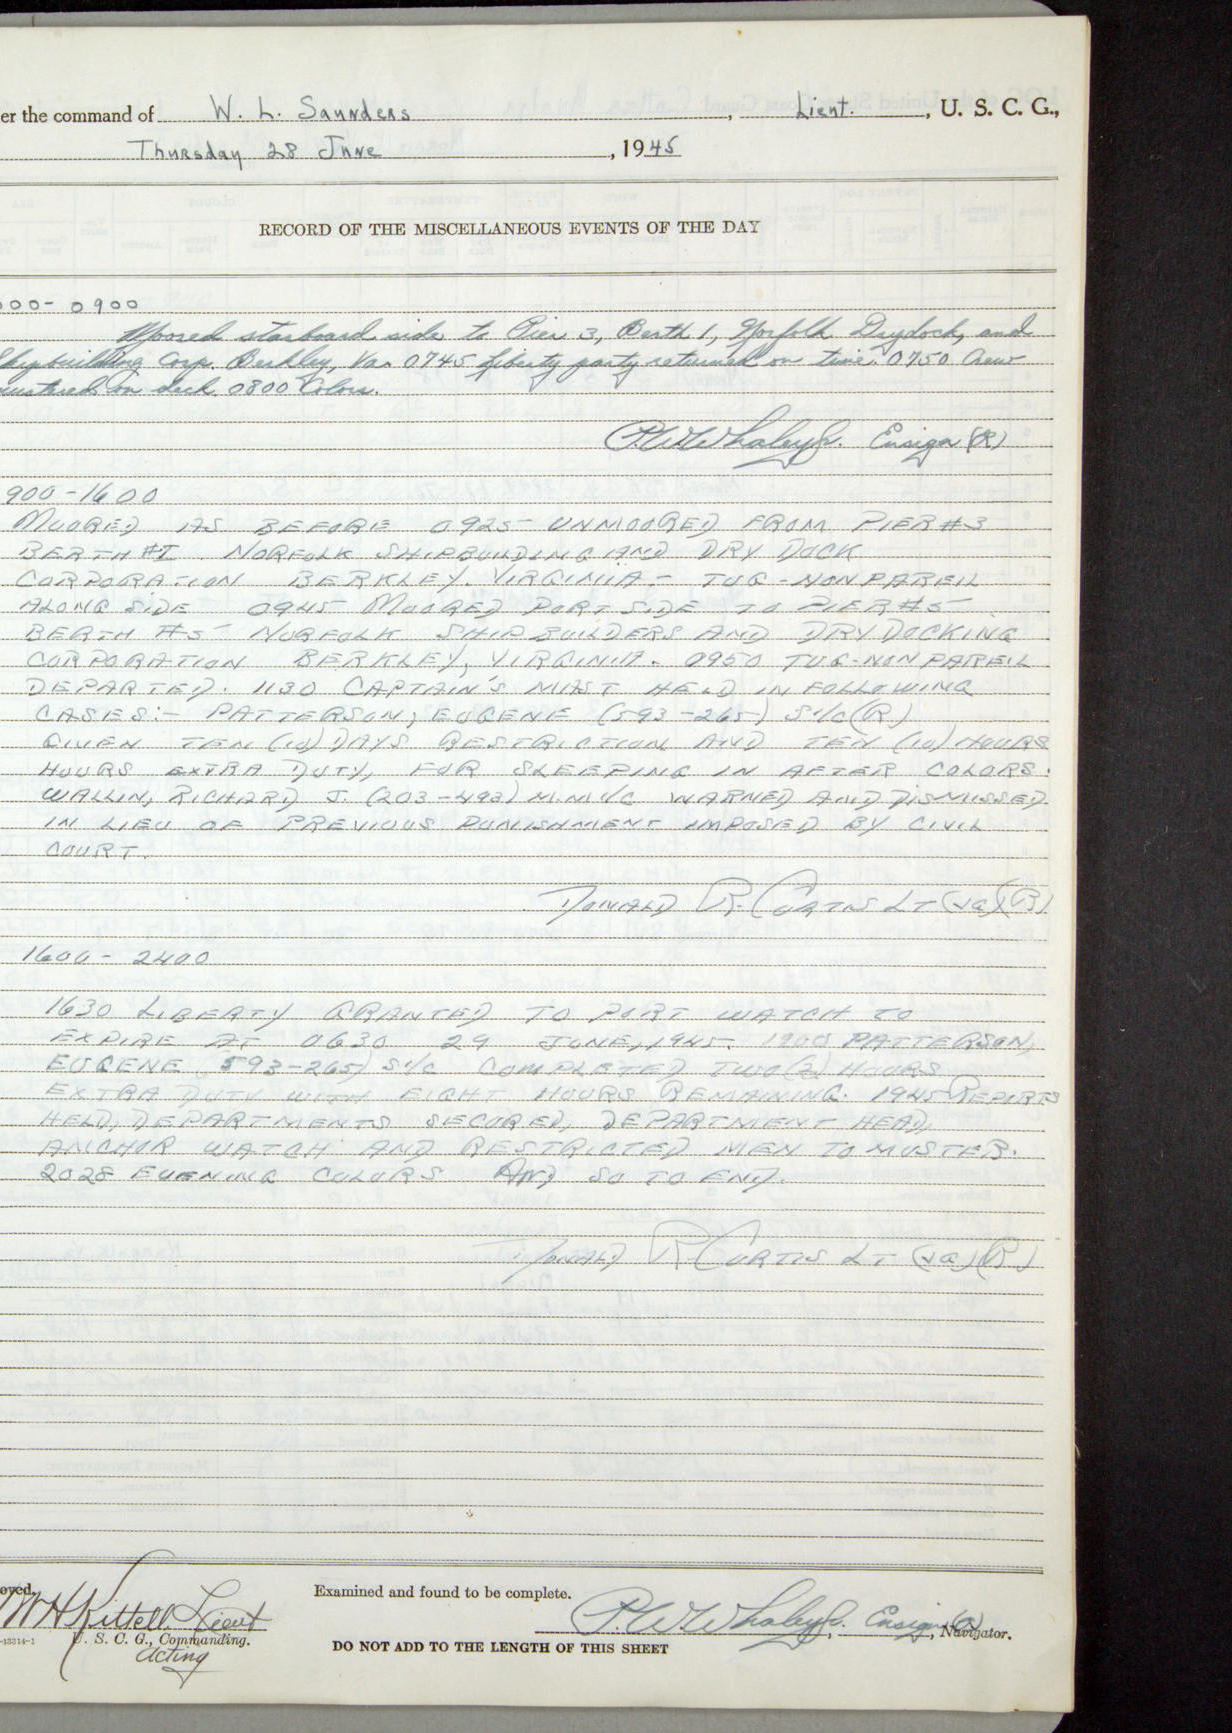 er the command of W. L. Saunders, Lieut., U. S. C. G.,
Thursday 28 June, 1945
RECORD OF THE MISCELLANEOUS EVENTS OF THE DAY
000-0900
Moored starboard side to Pier 3, Berth 1, Norfolk Drydock, and
Shipbuilding Corp. Berkley, Va. 0745 Liberty party returned on time. 0750 Crew
mustered on deck. 0800 Colors.
P.W. Whaley Jr. Ensign (R)
900-1600
MOORED AS BEFORE 0925 UNMOORED FROM PIER #3
BERTH #1 NORFOLK SHIPBUILDING AND DRY DOCK
CORPORATION BERKLEY, VIRGINIA - TUG-NONPAREIL
ALONG SIDE 0945 MOORED PORT SIDE TO PIER #5
BERTH #5 NORFOLK SHIPBUILDERS AND DRYDOCKING
CORPORATION BERKLEY, VIRGINIA. 0950 TUG-NONPAREIL
DEPARTED. 1130 CAPTAIN'S MAST HELD IN FOLLOWING
CASES:- PATTERSON, EUGENE (593-265) S1/c (R)
GIVEN TEN (10) DAYS RESTRICTION AND TEN (10) HOURS
HOURS EXTRA DUTY, FOR SLEEPING IN AFTER COLORS.
WALLIN, RICHARD J. (203-493) M.M.1/c WARNED AND DISMISSED
IN LIEU OF PREVIOUS PUNISHMENT IMPOSED BY CIVIL
COURT.
DONALD R. CURTIS LT (JG)(R)
1600-2400
1630 LIBERTY GRANTED TO PORT WATCH TO
EXPIRE AT 0630 29 JUNE, 1945. 1900 PATTERSON,
EUGENE (593-265) S1/c COMPLETED TWO (2) HOURS
EXTRA DUTY WITH EIGHT HOURS REMAINING. 1945 REPORTS
HELD, DEPARTMENTS SECURED, DEPARTMENT HEAD,
ANCHOR WATCH AND RESTRICTED MEN TO MUSTER.
2028 EVENING COLORS AND SO TO END.
DONALD R. CURTIS LT (JG)(R)
oved.
W H Kittell Lieut
-13314-1 U. S. C. G., Commanding.
Acting
Examined and found to be complete.
P.W. Whaley Jr., Ensign (R), Navigator.
DO NOT ADD TO THE LENGTH OF THIS SHEET